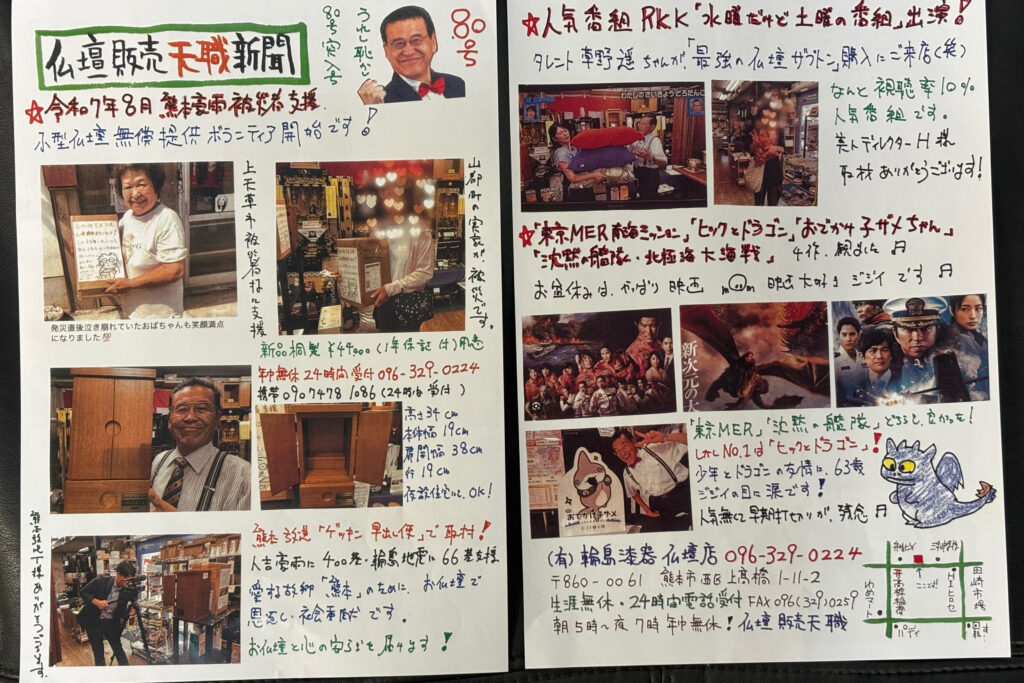 仏壇販売天職新聞
うれし恥ずかし
80号突入号
80号
☆令和7年8月 熊本豪雨被災者支援
小型仏壇無償提供ボランティア開始です!
上天草市被災者様に支援
山都町の実家が被災です。
発災直後泣き崩れていたおばちゃんも笑顔満点
になりました💯
新品桐製 ¥44,000(1年保証付)用意
年中無休24時間受付096-329-0224
携帯090 7478 1086(24時間受付)
高さ34cm
本体幅19cm
扉開幅38cm
行19cm
仮設住宅にOK!
熊本放送「ゲツキン早出し便」で取材!
人吉豪雨に400基・輪島地震に66基支援
愛する故郷「熊本」のために、お仏壇で
恩返し・社会貢献です。
お仏壇と心の安らぎを届けます!
熊本放送T様ありがとうございます。
☆人気番組RKK「水曜だけど土曜の番組」出演!
タレント草野遥ちゃんが「最強の仏壇ザブトン」購入にご来店(笑)
わたしのさいきょうとろたんこ
なんと視聴率10%
人気番組です。
美人ディレクターH様
取材ありがとうございます!
☆「東京MER南海ミッション」「ヒックとドラゴン」「おでかけ子ザメちゃん」
「沈黙の艦隊・北極海大海戦」4作、観ました♬
お盆休みは、やっぱり映画 m(__)m 映画大好きジジイです♬
新次元の大
おでかけ子ザメ
「東京MER」「沈黙の艦隊」どちらも良かった!
しかしNo.1は「ヒックとドラゴン」!
少年とドラゴンの友情に、63歳
ジジイの目に涙です!
人気無くて早期打ち切りが、残念♬
(有)輪島漆器仏壇店 096-329-0224
〒860-0061 熊本市西区上高橋1-11-2
生涯無休・24時間電話受付 FAX096(329)0259
朝5時~夜7時年中無休!仏壇販売天職
ここだよ!
高橋稲荷
ヒロセ
田崎市場